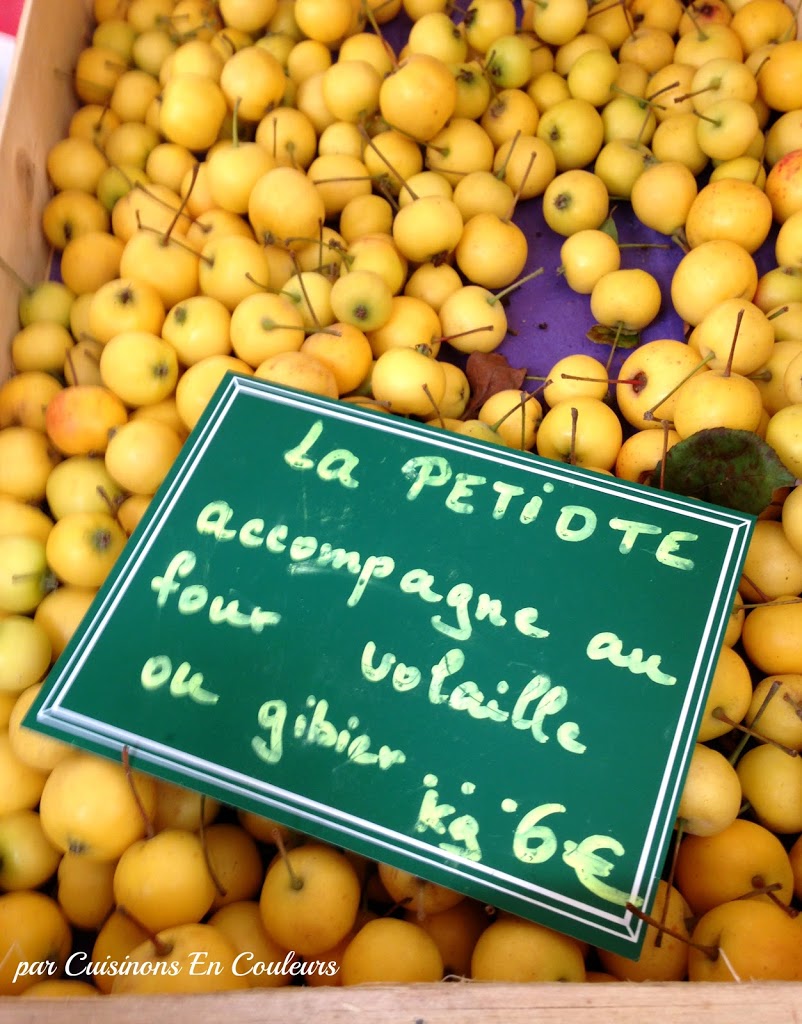 La PETiOTE
accompagne au
four volaille
ou gibier
kg 6€
par Cuisinons En Couleurs